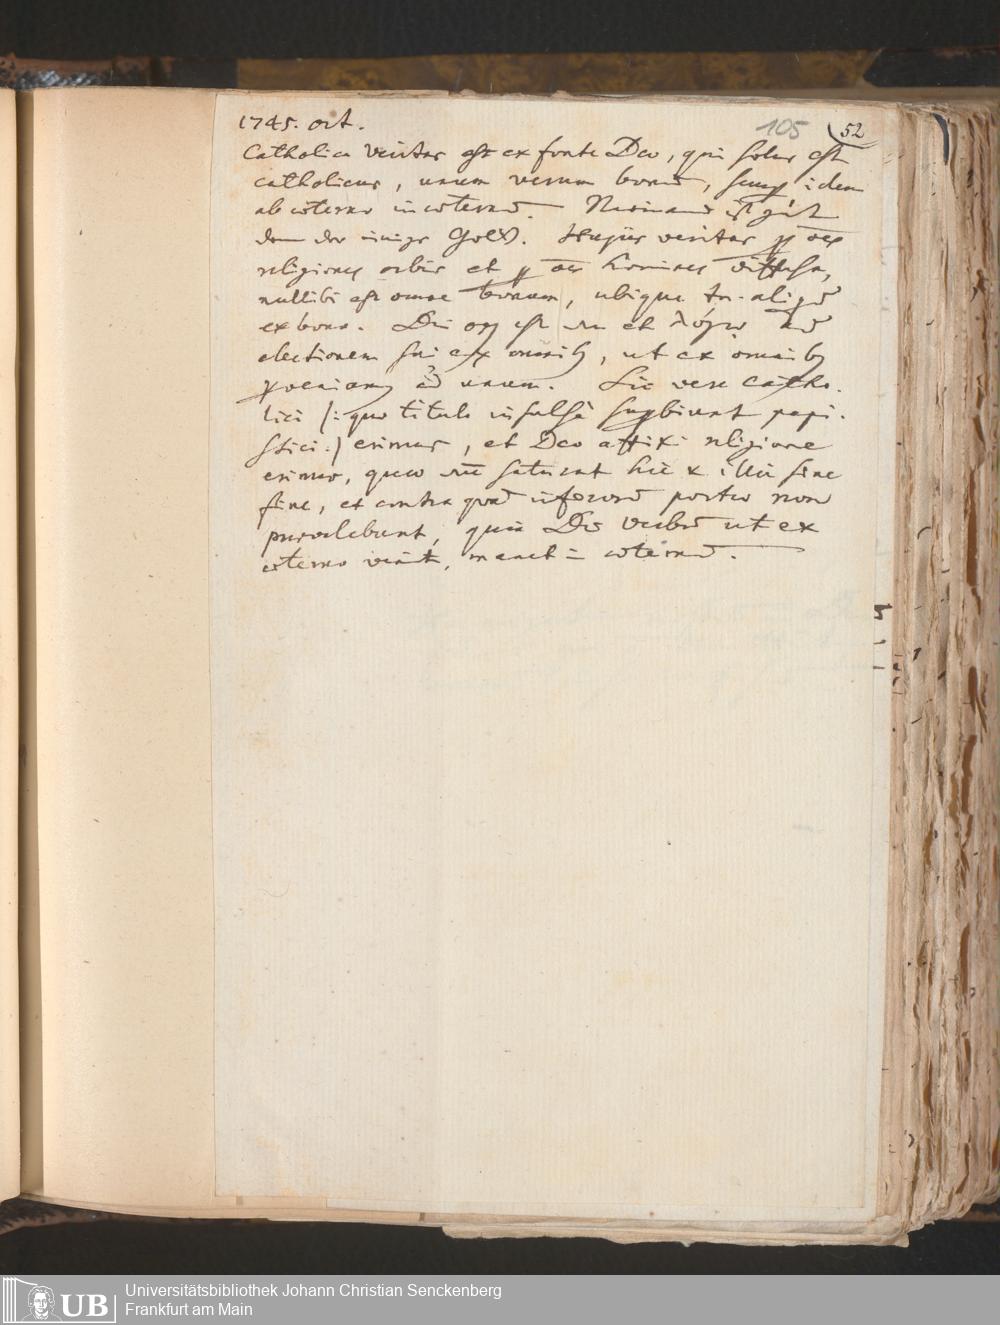 1745. oct.
105
52
Catholica veritas est ex fonte Deo, qui solus est
catholicus, unum verum bonū, semp idem
ab æterno in æternū. Niemand ist gút
den der einige Gott. Hujus veritas p oēs
religiones orbis et p oēs homines diffusa,
nullibi est omne bonum, ubique tn. aliqd
ex bono. Dei est et λόγῳ ad
electionem sui ex omnib, ut ex omnib
pveniamq ad unum. Sic vere catho-
lici /: quo titulo insulsè supbiunt papi-
stici :/ erimus, et Deo affixi religione
erimus, quæ saturat hic & illic sine
fine, et contra quā inferorū portæ non
prævalebunt, quia Dei verbū ut ex
æterno venit, manet in æternū.
Universitätsbibliothek Johann Christian Senckenberg
Frankfurt am Main
UB